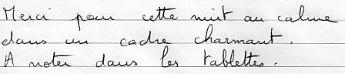 Merci pour cette nuit au calme
dans un cadre charmant.
A noter dans les tablettes.